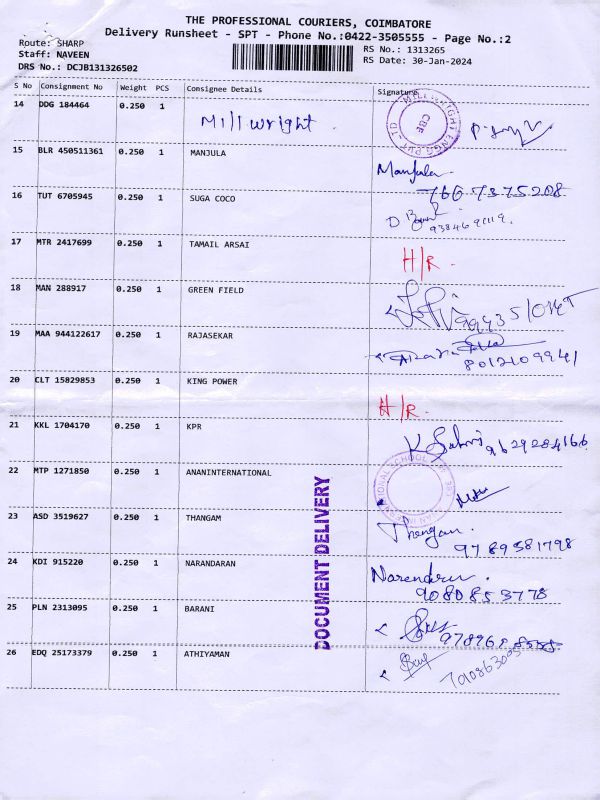 THE PROFESSIONAL COURIERS, COIMBATORE
Delivery Runsheet - SPT - Phone No.:0422-3505555 - Page No.:2
Route: SHARP
Staff: NAVEEN
DRS No.: DCJB131326502
RS No.: 1313265
RS Date: 30-Jan-2024
S No Consignment No Weight PCS Consignee Details Signature
14 DDG 184464 0.250 1 Millwright
CBE
15 BLR 450511361 0.250 1 MANJULA Manjula
7667375208
16 TUT 6705945 0.250 1 SUGA COCO
17 MTR 2417699 0.250 1 TAMAIL ARSAI H/R.
18 MAN 288917 0.250 1 GREEN FIELD
19 MAA 944122617 0.250 1 RAJASEKAR
8012109941
20 CLT 15829853 0.250 1 KING POWER H/R.
21 KKL 1704170 0.250 1 KPR
9629284166
22 MTP 1271850 0.250 1 ANANINTERNATIONAL
23 ASD 3519627 0.250 1 THANGAM Thangam
9789381798
24 KDI 915220 0.250 1 NARANDARAN Narendran.
9080853778
25 PLN 2313095 0.250 1 BARANI
26 EDQ 25173379 0.250 1 ATHIYAMAN
DOCUMENT DELIVERY